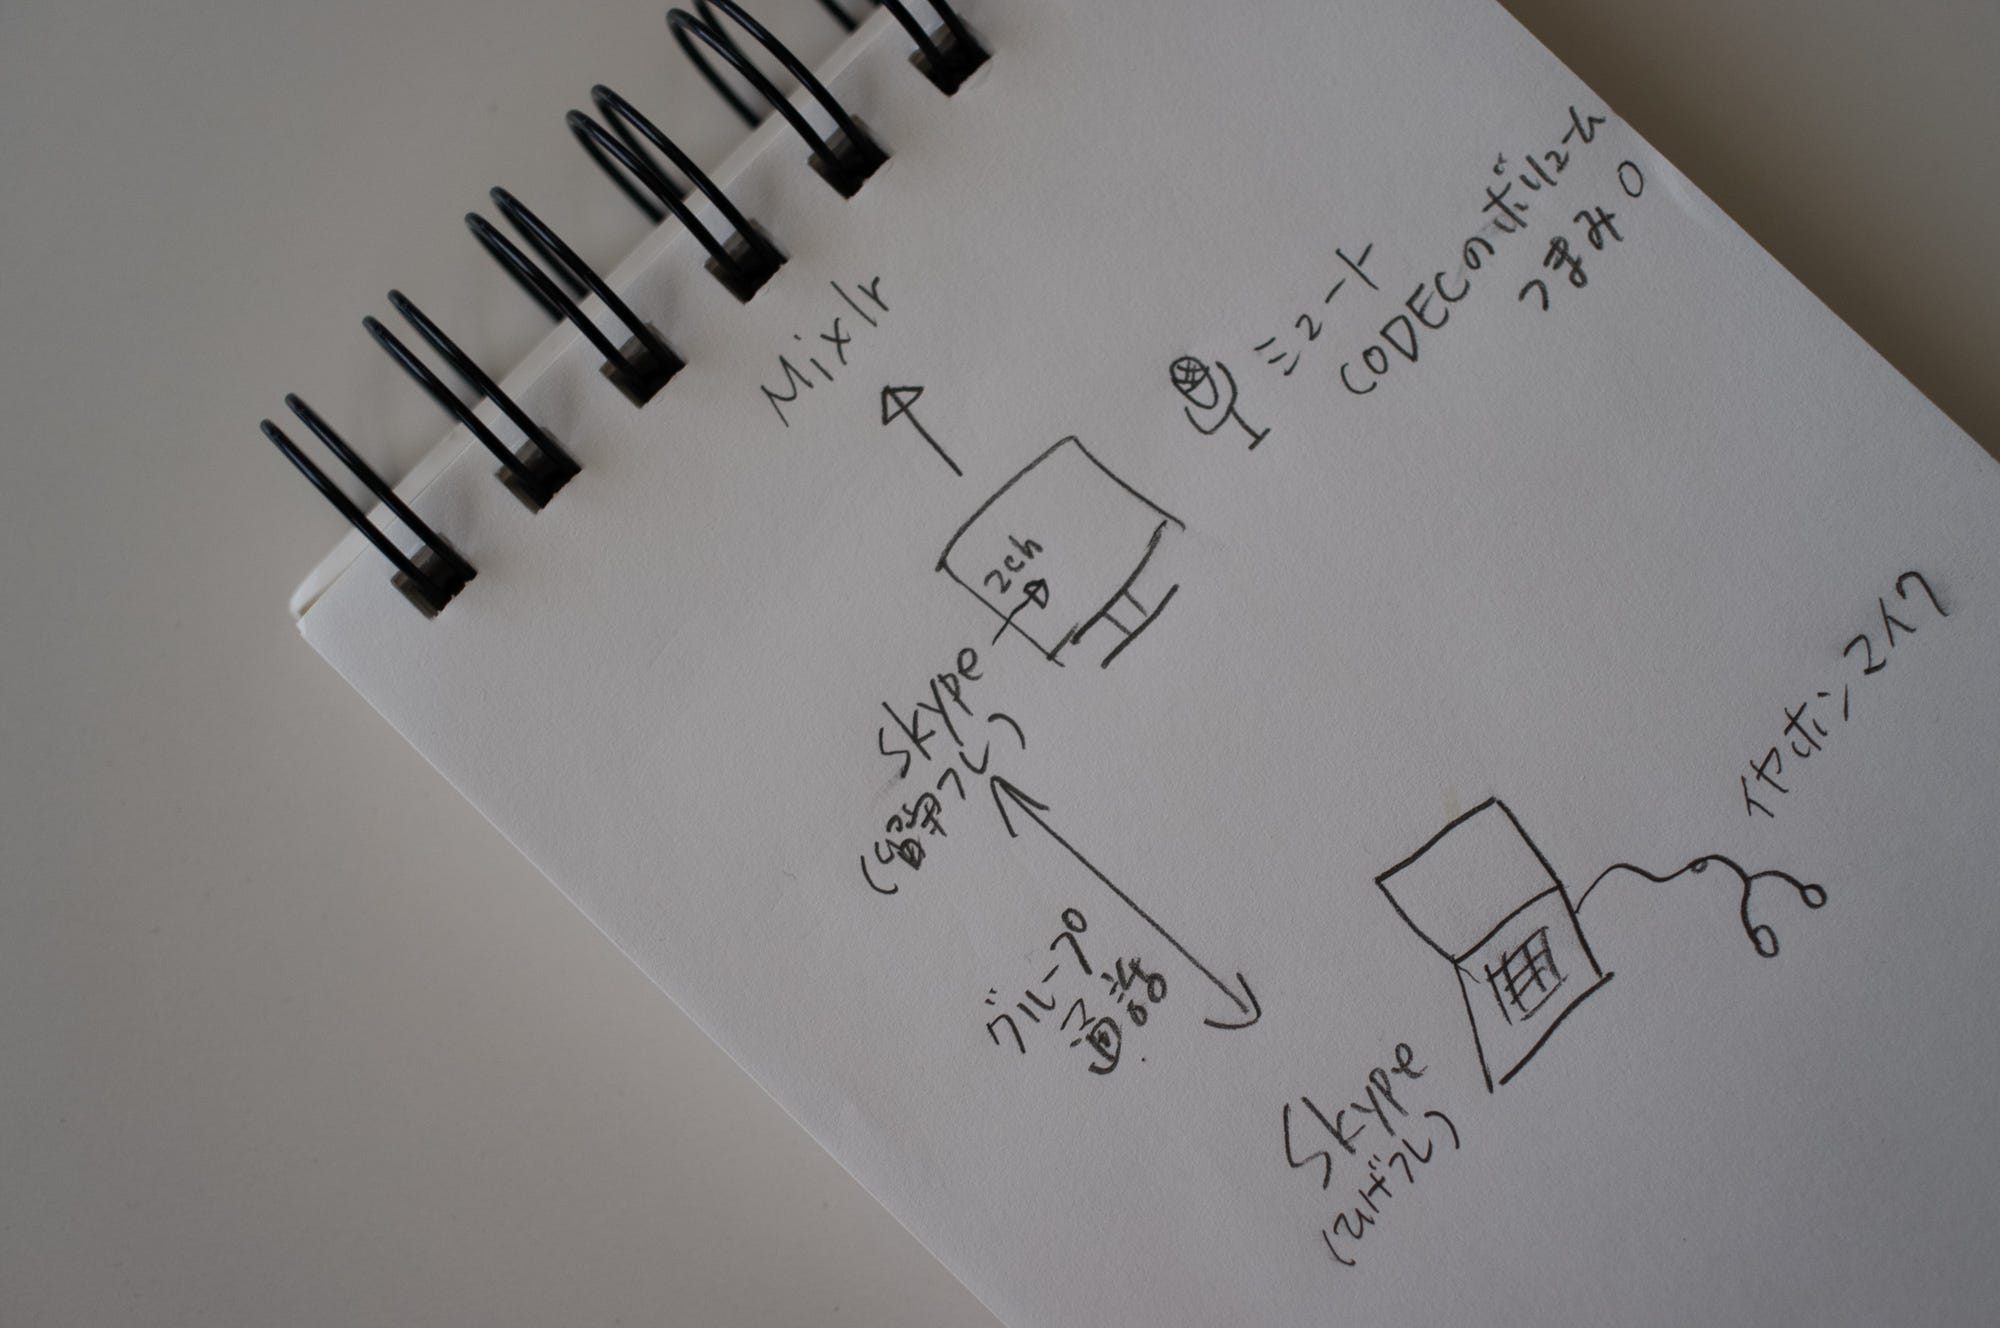 Mixlr
ミュート
CODECのボリューム
つまみ0
2ch
Skype
(留守フレ)
グループ
通話
イヤホンマイク
Skype